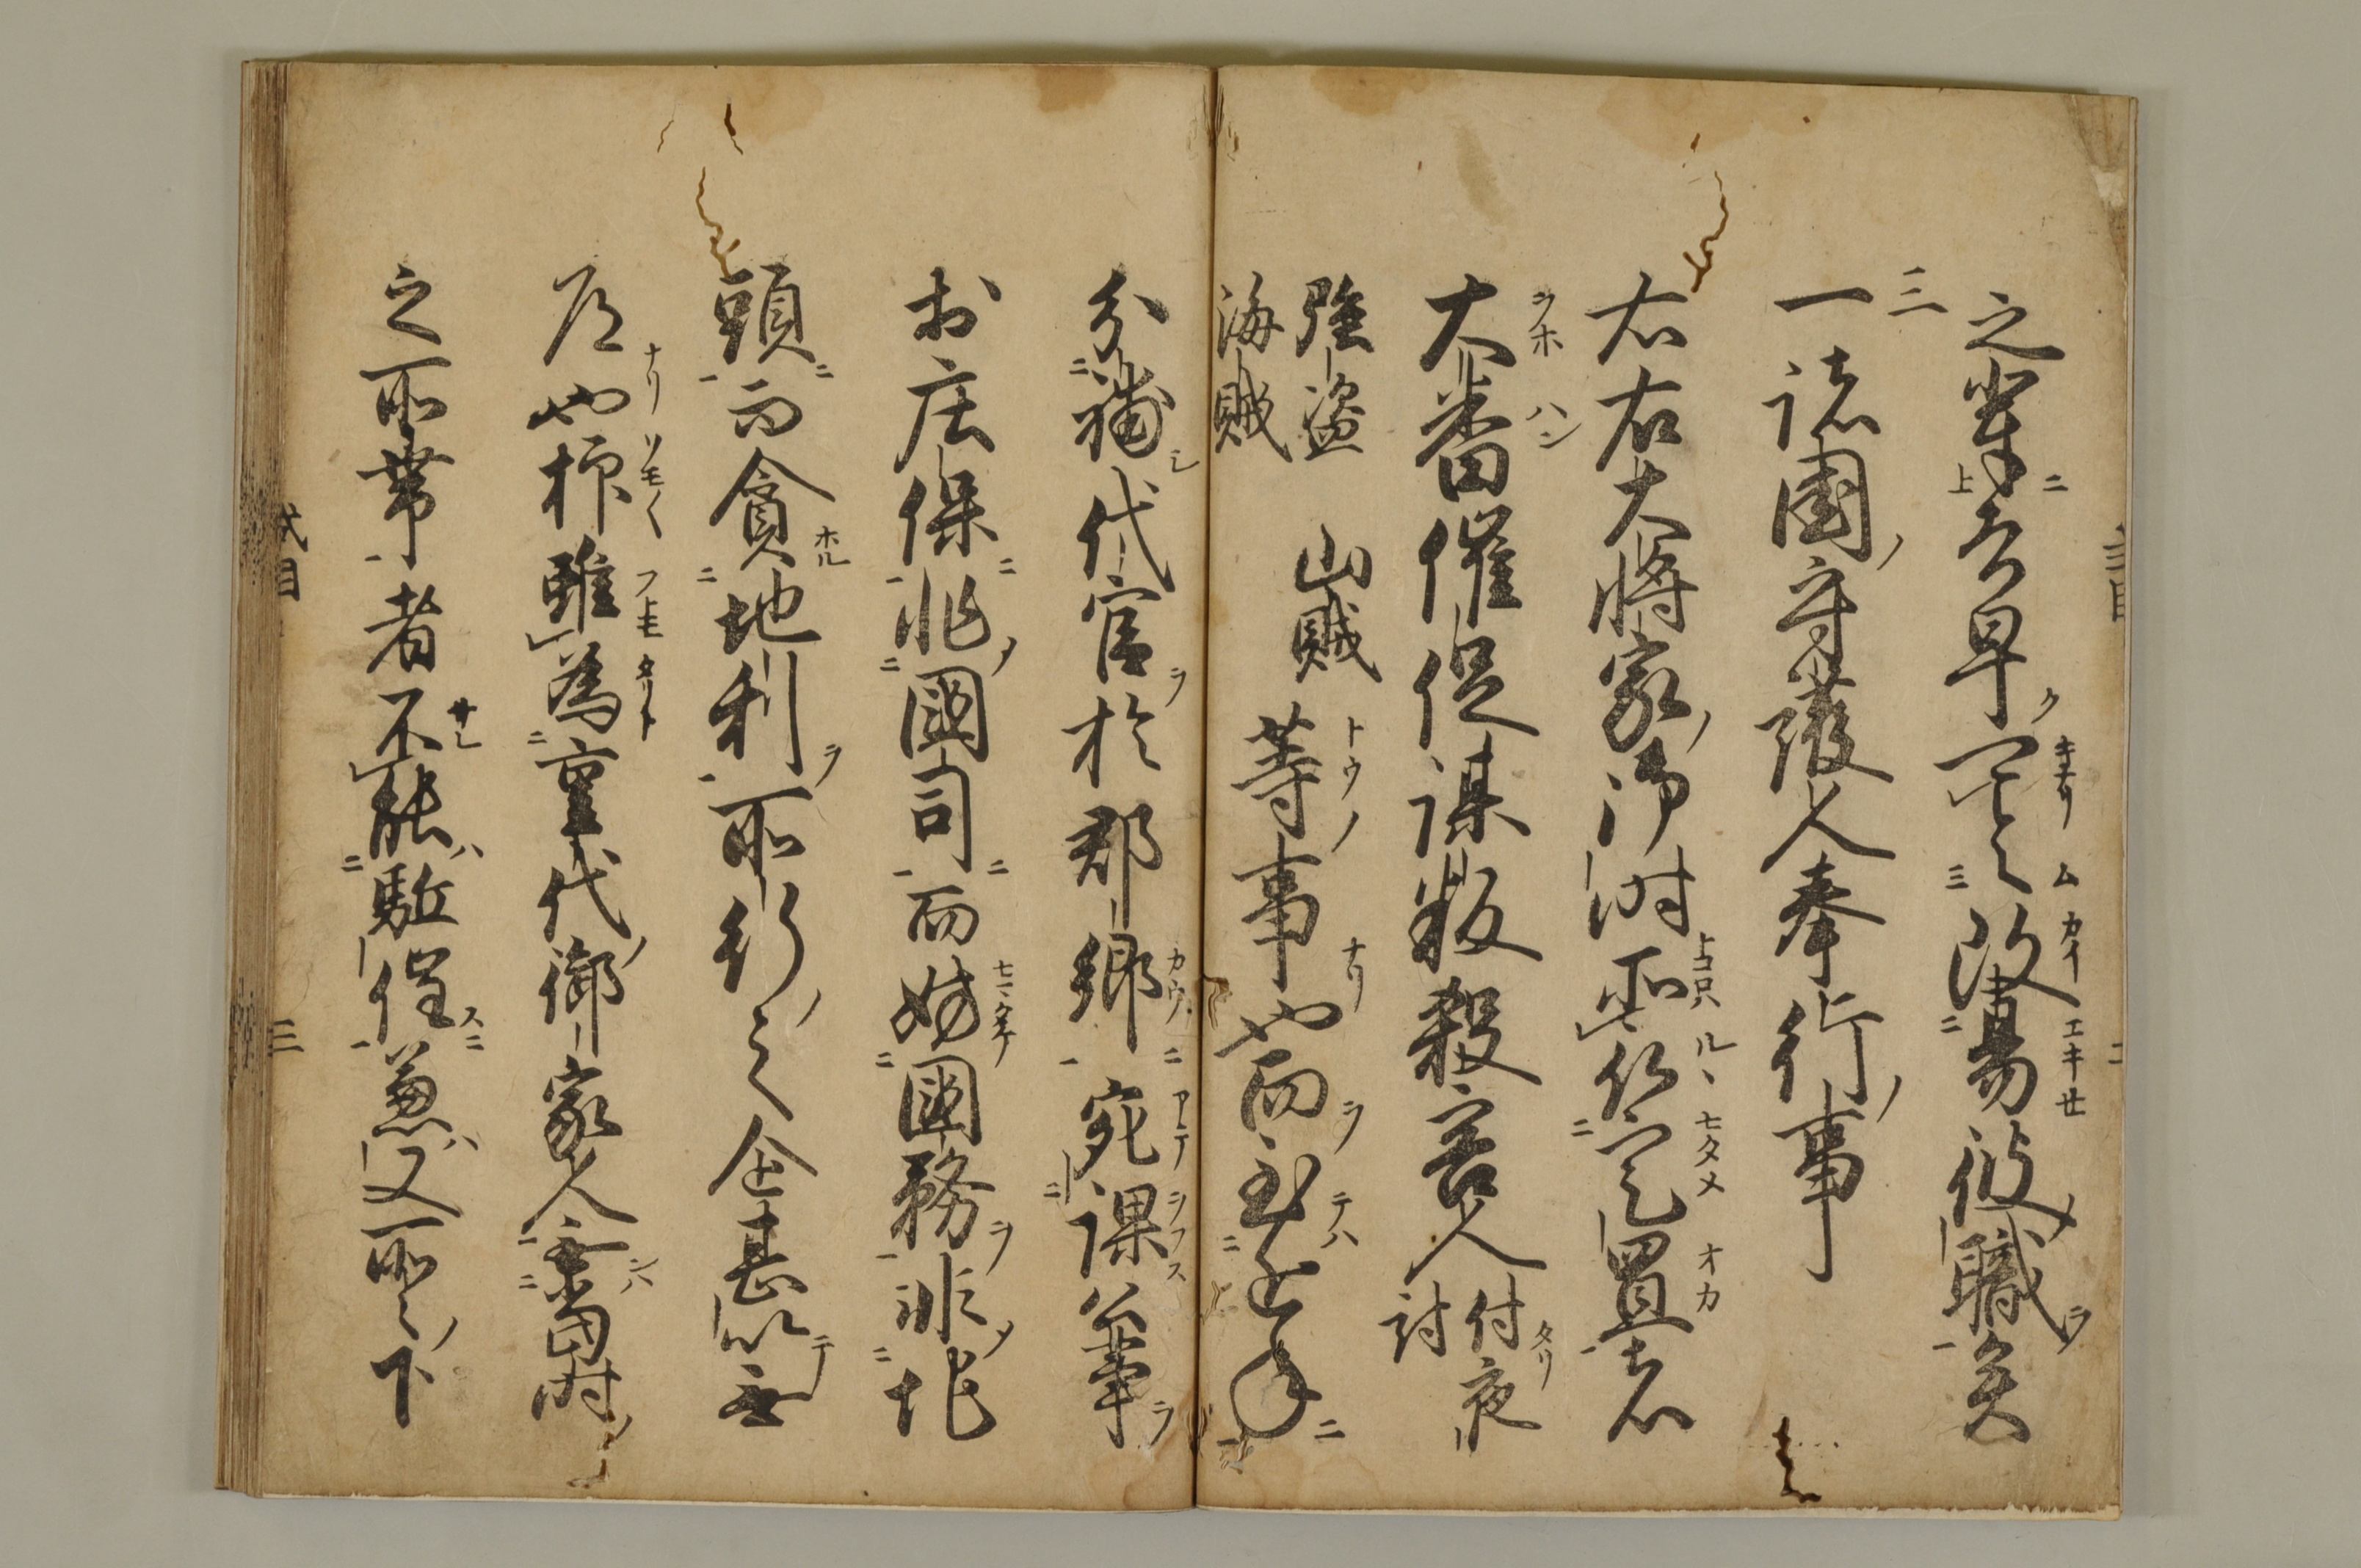 之輩者早可令改易彼職矣
三
一諸国守護人奉行事
右右大将家御時所被定置者
大番催促謀叛殺害人付夜討
強盗山賊海賊等事也而至近年
分補代官於郡郷宛課公事
於庄保非國司而妨國務非地
頭而貪地利所行之企甚以無
道也抑雖為重代御家人無當時
之所帯者不能駈催兼又所々下
式目 三